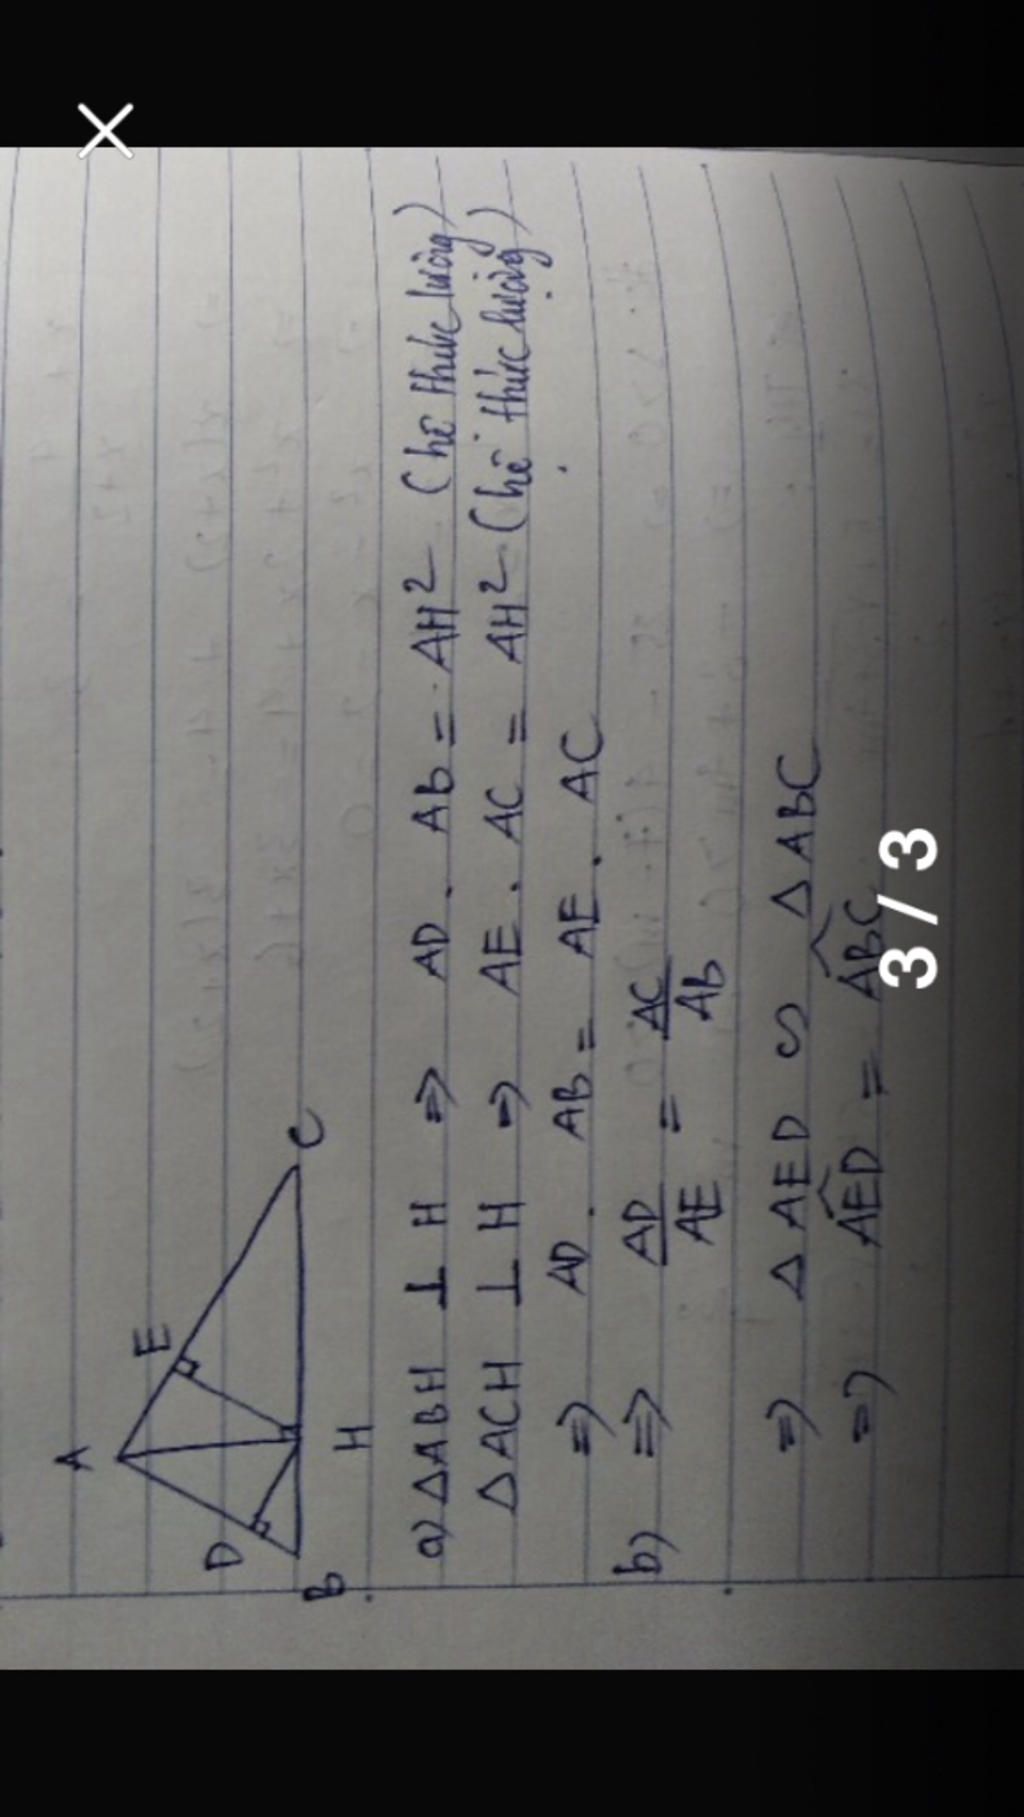 A
D
E
B
H
C
a) ΔABH ⊥ H => AD . AB = AH² (hê thức lường)
ΔACH ⊥ H => AE . AC = AH² (hê thức lường)
=> AD . AB = AE . AC
b) => AD/AE = AC/AB
=> Δ AED ∽ Δ ABC
=> AED = ABC
3 / 3